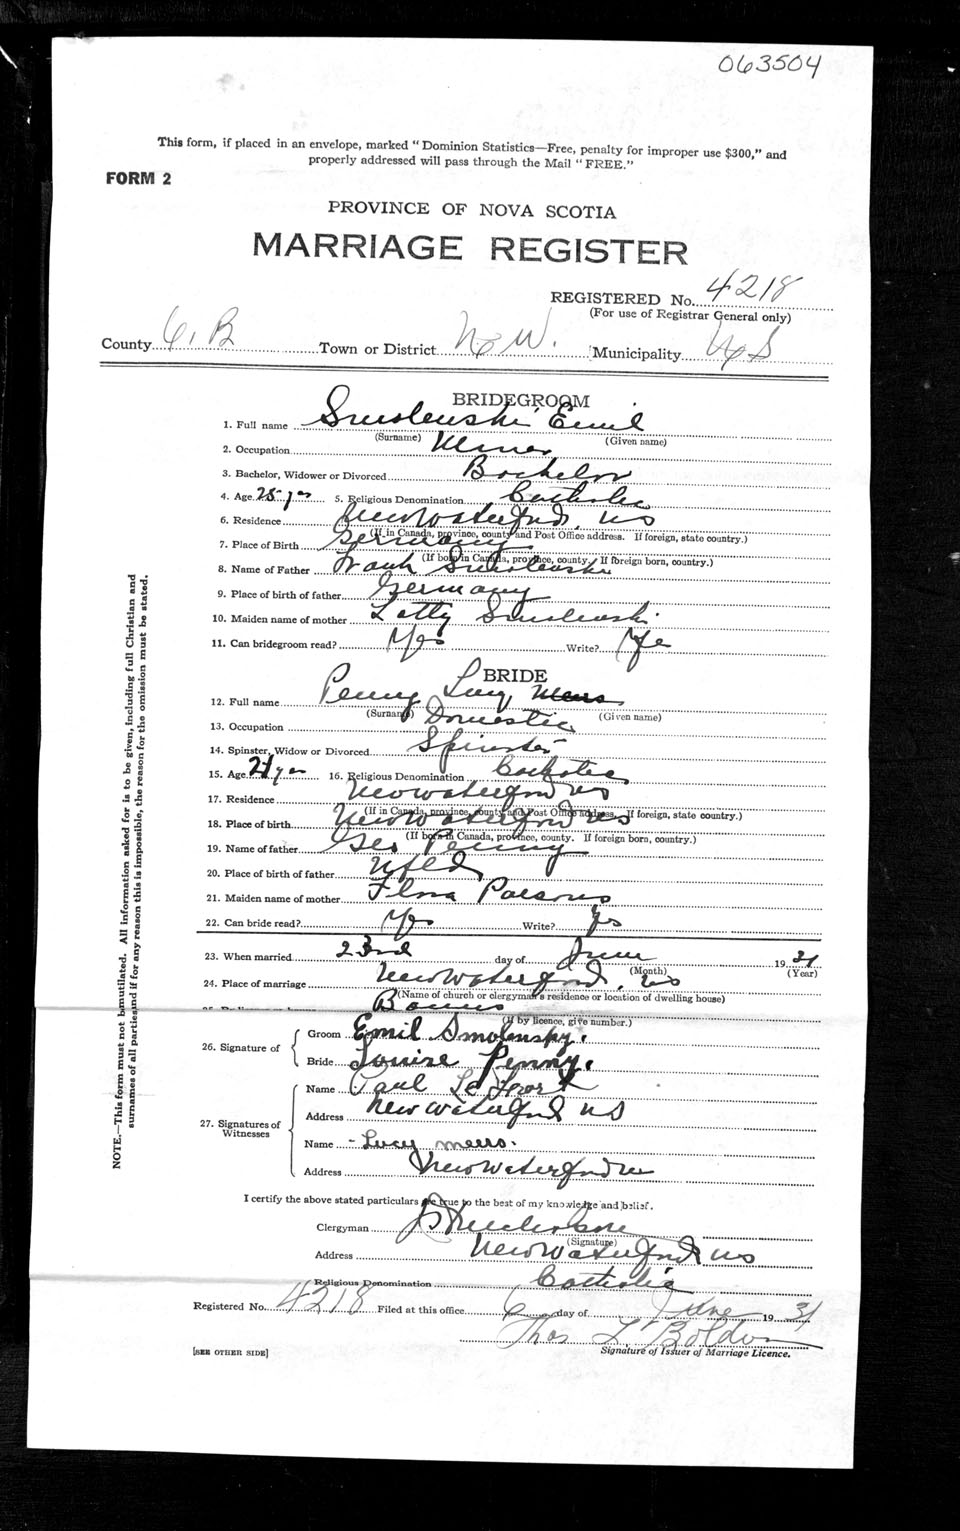 063504
This form, if placed in an envelope, marked "Dominion Statistics—Free, penalty for improper use $300," and
properly addressed will pass through the Mail "FREE."
FORM 2
PROVINCE OF NOVA SCOTIA
MARRIAGE REGISTER
REGISTERED No. 4218
(For use of Registrar General only)
County C. B Town or District N W. Municipality NS
BRIDEGROOM
1. Full name Smolenski Emil
(Surname) (Given name)
2. Occupation Miner
3. Bachelor, Widower or Divorced Bachelor
4. Age 25 yrs 5. Religious Denomination Catholic
6. Residence New Waterford, NS
(If in Canada, province, county and Post Office address. If foreign, state country.)
7. Place of Birth Germany
(If born in Canada, province, county. If foreign born, country.)
8. Name of Father Frank Smolenski
9. Place of birth of father Germany
10. Maiden name of mother Letty Smolenski
11. Can bridegroom read? Yes Write? Yes
BRIDE
12. Full name Penny Lucy
(Surname) (Given name)
13. Occupation Domestic
14. Spinster, Widow or Divorced Spinster
15. Age 21 yrs 16. Religious Denomination Catholic
17. Residence New Waterford NS
(If in Canada, province, county and Post Office address. If foreign, state country.)
18. Place of birth New Waterford NS
(If born in Canada, province, county. If foreign born, country.)
19. Name of father Geo Penny
20. Place of birth of father Nfld
21. Maiden name of mother Flora Parsons
22. Can bride read? Yes Write? Yes
23. When married 23rd day of June 1931
(Month) (Year)
24. Place of marriage New Waterford, NS
(Name of church or clergyman's residence or location of dwelling house)
Banns
(If by licence, give number.)
26. Signature of
Groom Emil Smolenspy.
Bride Louise Penny.
27. Signatures of Witnesses
Name Paul
Address New Waterford NS
Name Lucy meers.
Address New Waterford NS
I certify the above stated particulars are true to the best of my knowledge and belief.
Clergyman
(Signature)
Address New Waterford NS
Religious Denomination Catholic
Registered No. 4218 Filed at this office 6 day of June 1931
Thos L Boldon
[SEE OTHER SIDE] Signature of Issuer of Marriage Licence.
NOTE.—This form must not be mutilated. All information asked for is to be given, including full Christian and
surnames of all parties and if for any reason this is impossible, the reason for the omission must be stated.